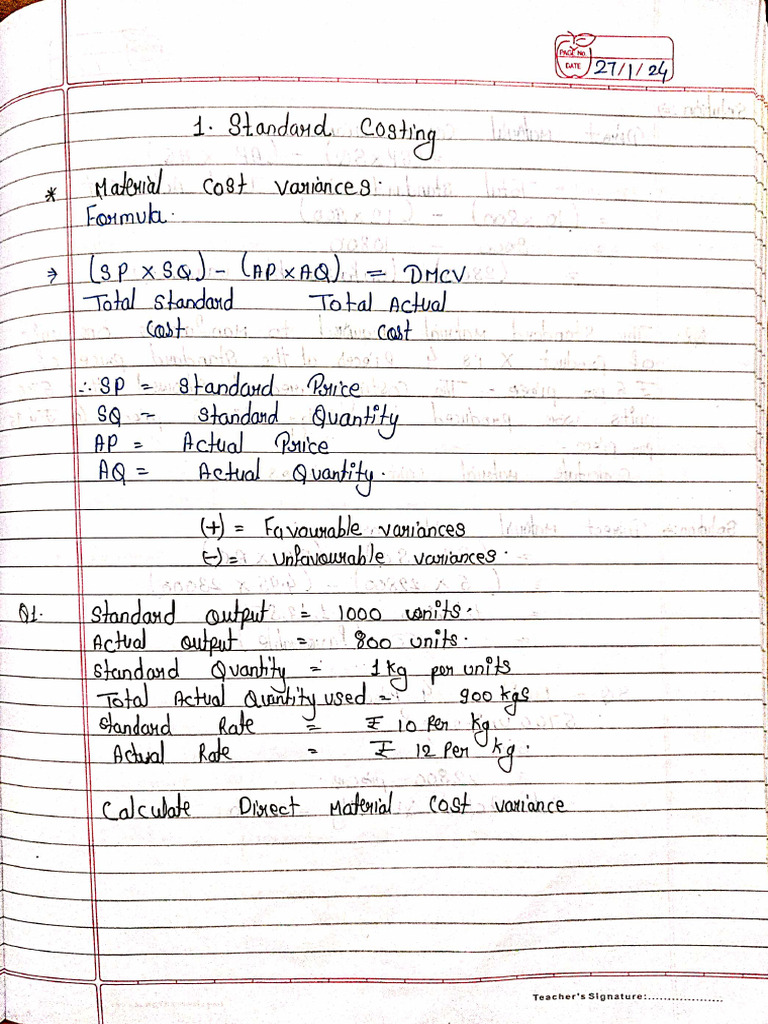 PAGE NO.
DATE 27/1/24
1. Standard Costing
* Material cost variances.
Formula.
⇒ (SP x SQ) - (AP x AQ) = DMCV
Total Standard Total Actual
cost cost
∴ SP = Standard Price
SQ = Standard Quantity
AP = Actual Price
AQ = Actual Quantity.
(+) = Favourable variances
(-) = Unfavourable variances.
Q1. Standard output = 1000 units.
Actual output = 800 units.
Standard Quantity = 1 kg per units
Total Actual Quantity used = 900 kgs
Standard Rate = ₹ 10 Per kg
Actual Rate = ₹ 12 Per kg.
Calculate Direct Material Cost variance
Teacher's Signature:..................